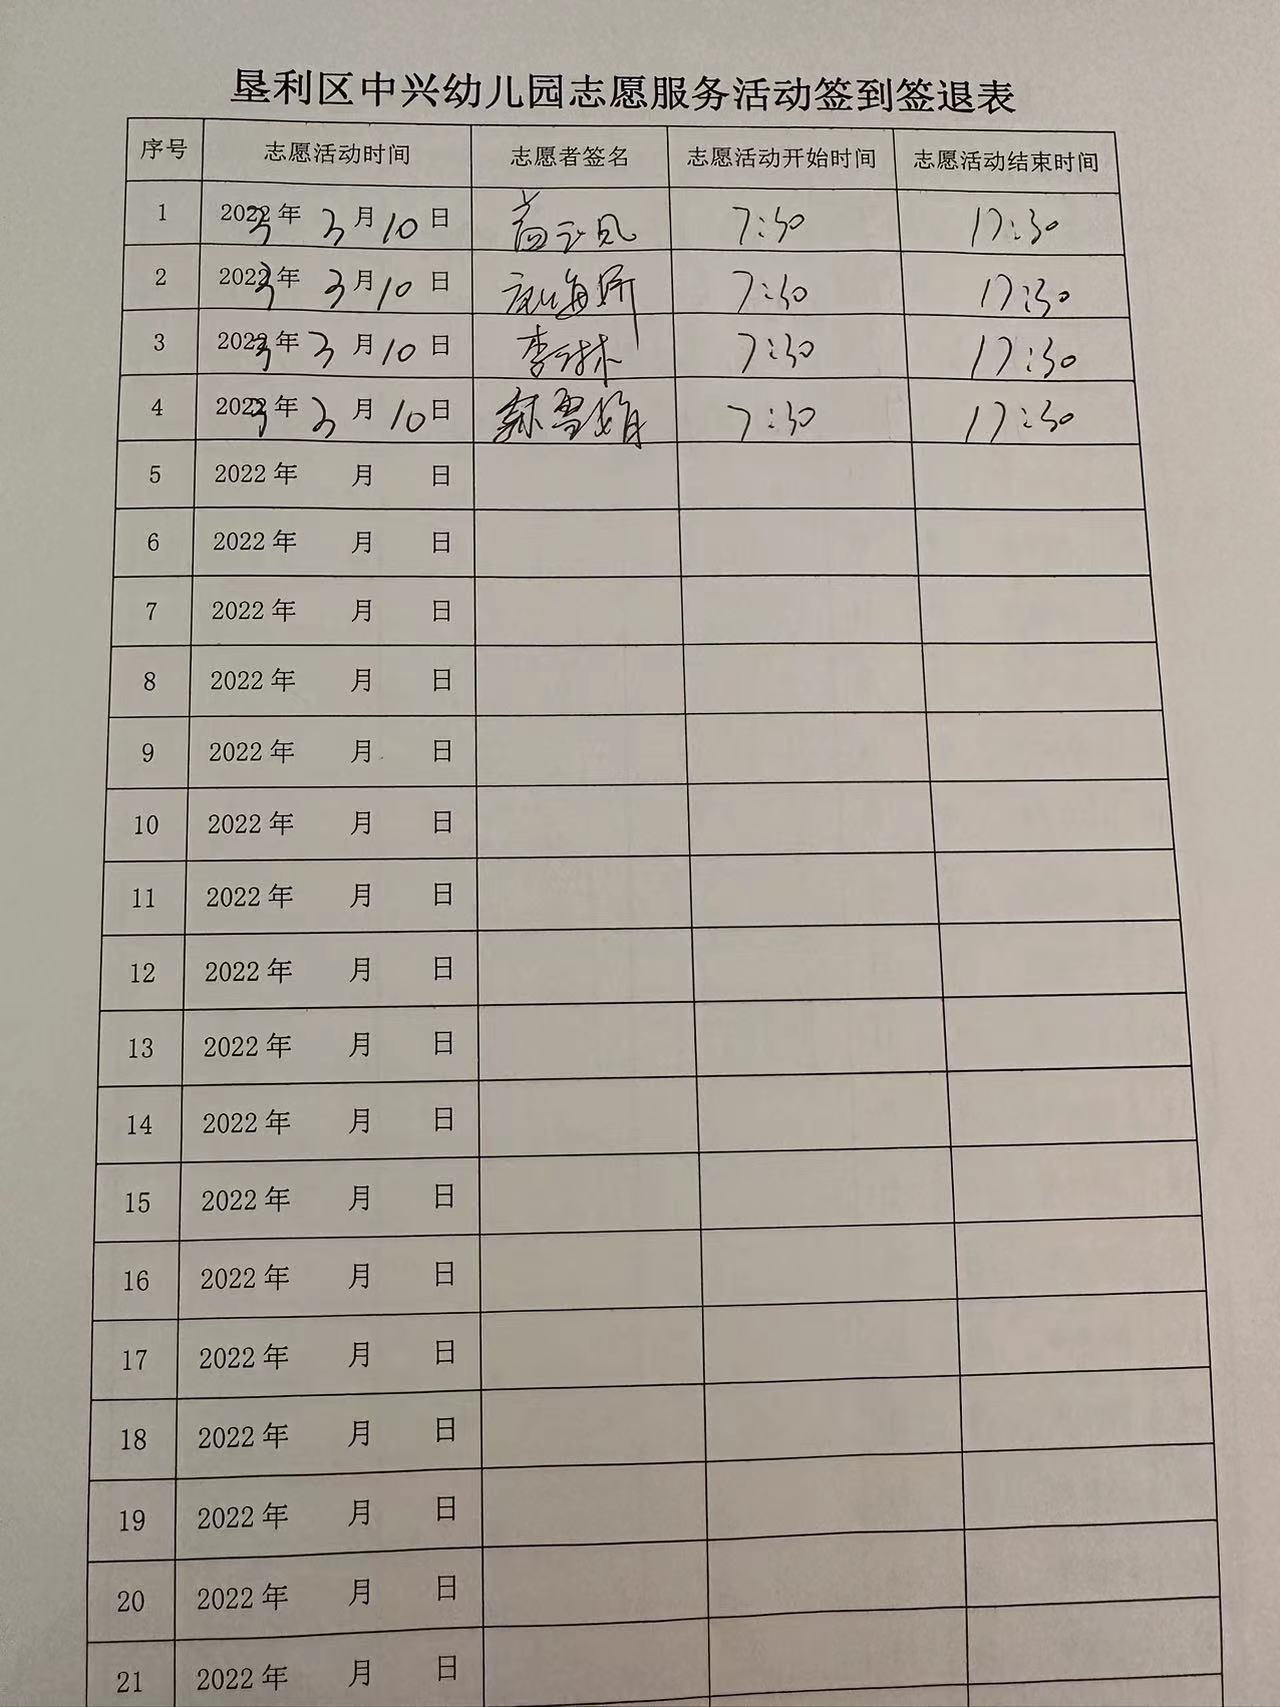 垦利区中兴幼儿园志愿服务活动签到签退表
序号 志愿活动时间 志愿者签名 志愿活动开始时间 志愿活动结束时间
1 2023年 3月10日 7:30 17:30
2 2023年 3月10日 7:30 17:30
3 2023年 3月10日 李 林 7:30 17:30
4 2023年 3月10日 7:30 17:30
5 2022年 月 日
6 2022年 月 日
7 2022年 月 日
8 2022年 月 日
9 2022年 月 日
10 2022年 月 日
11 2022年 月 日
12 2022年 月 日
13 2022年 月 日
14 2022年 月 日
15 2022年 月 日
16 2022年 月 日
17 2022年 月 日
18 2022年 月 日
19 2022年 月 日
20 2022年 月 日
21 2022年 月 日